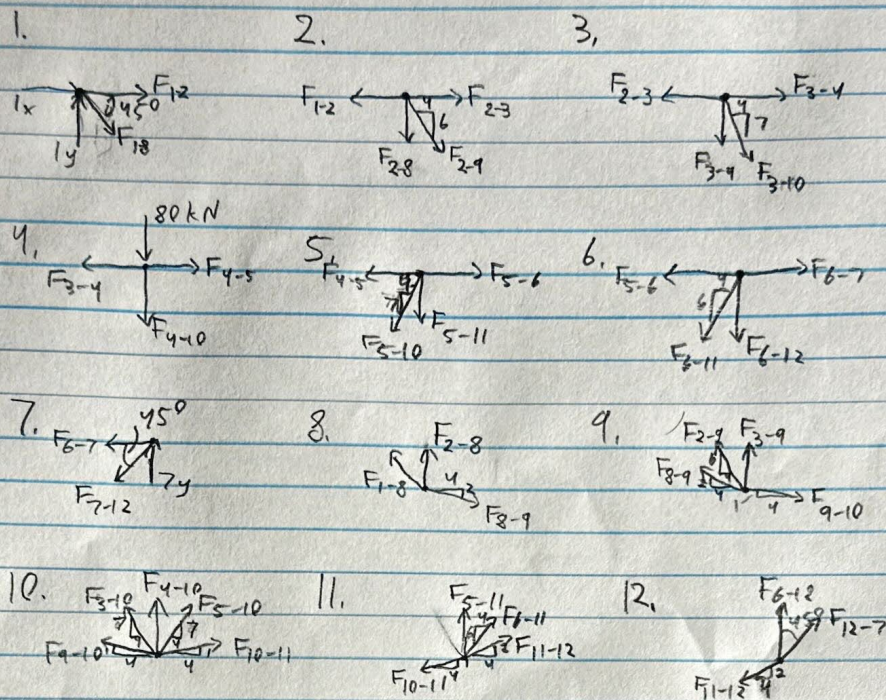 1. 2. 3,
1x F1-2 45° F1-8 1y
F1-2 F2-3 4 6 F2-8 F2-9
F2-3 F3-4 4 7 F3-9 F3-10
4, 5, 6.
80 kN F3-4 F4-5 F4-10
F4-5 F5-6 7 F5-10 F5-11
F5-6 F6-7 4 6 F6-11 F6-12
7. 8. 9,
F6-7 45° F7-12 7y
F2-8 F1-8 4 2 F8-9
F2-9 F3-9 F8-9 6 4 2 4 1 4 F9-10
10. 11. 12.
F3-10 F4-10 F5-10 7 7 F9-10 4 4 1 F10-11
F5-11 F6-11 4 2 F11-12 F10-11 4 4
F6-12 45° F12-7 F11-12 4 2